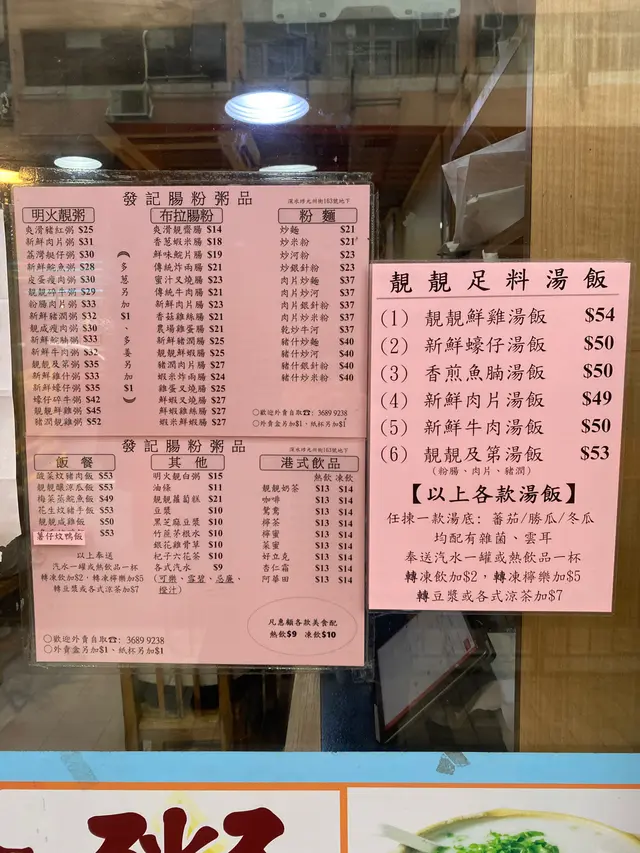 發記腸粉粥品
深水埗九州街163號地下
明火靚粥
爽滑豬紅粥 $25
新鮮肉片粥 $31
荔灣艇仔粥 $30
新鮮鯇魚粥 $28
皮蛋瘦肉粥 $30
靚靚碎牛粥 $29
粉腸肉片粥 $33
新鮮豬潤粥 $32
靚咸瘦肉粥 $30
新鮮鯇腩粥 $33
新鮮牛肉粥 $32
靚靚及第粥 $35
新鮮雞仔粥 $33
新鮮蠔仔粥 $35
蠔仔碎牛粥 $42
靚靚鮮雞粥 $45
豬潤靚雞粥 $52
(多蔥另加$1、多薑另加$1)
布拉腸粉
爽滑靚齋腸 $14
香蔥蝦米腸 $18
鮮味鯇片腸 $19
傳統炸兩腸 $21
蜜汁叉燒腸 $21
傳統牛肉腸 $21
新鮮肉片腸 $23
香菇雞絲腸 $21
農場雞蛋腸 $21
新鮮豬潤腸 $25
靚靚鮮蝦腸 $27
豬潤肉片腸 $27
蝦米炸兩腸 $24
雞蛋叉燒腸 $25
鮮蝦雞絲腸 $27
蝦米鮮蝦腸 $27
粉麵
炒麵 $21
炒米粉 $21
炒河粉 $23
炒銀針粉 $23
肉片炒麵 $37
肉片炒河 $37
肉片銀針粉 $37
肉片炒米粉 $37
乾炒牛河 $37
豬仔炒麵 $40
豬仔炒河 $40
豬仔銀針粉 $40
豬仔炒米粉 $40
○歡迎外賣自取☎:3689 9238
○外賣盒另加$1、紙杯另加$1
發記腸粉粥品
深水埗九州街163號地下
飯餐
酸菜炆豬肉飯 $53
靚靚釀涼瓜飯 $53
梅菜蒸鯇魚飯 $49
花生炆豬手飯 $53
靚靚咸雞飯 $50
薯仔炆鴨飯 $53
以上奉送
汽水一罐或熱飲品一杯
轉凍飲加$2,轉凍檸樂加$5
轉豆漿或各式涼茶加$7
○歡迎外賣自取☎:3689 9238
○外賣盒另加$1、紙杯另加$1
其他
明火靚白粥 $15
油條 $11
靚靚蘿蔔糕 $21
豆漿 $10
黑芝麻豆漿 $10
竹蔗茅根水 $10
銀花雞骨草 $10
杞子六花茶 $10
各式汽水 $9
(可樂、雪碧、忌廉、
橙汁)
港式飲品
熱飲 凍飲
靚靚奶茶 $13 $14
咖啡 $13 $14
鴛鴦 $13 $14
檸茶 $13 $14
檸水 $13 $14
檸蜜 $13 $14
菜蜜 $13 $14
好立克 $13 $14
杏仁霜 $13 $14
阿華田 $13 $14
凡惠顧各款美食配
熱飲$9 凍飲$10
靚靚足料湯飯
(1) 靚靚鮮雞湯飯 $54
(2) 新鮮蠔仔湯飯 $50
(3) 香煎魚腩湯飯 $50
(4) 新鮮肉片湯飯 $49
(5) 新鮮牛肉湯飯 $50
(6) 靚靚及第湯飯 $53
(粉腸、肉片、豬潤)
【以上各款湯飯】
任揀一款湯底:蕃茄/勝瓜/冬瓜
均配有雜菌、雲耳
奉送汽水一罐或熱飲品一杯
轉凍飲加$2,轉凍檸樂加$5
轉豆漿或各式涼茶加$7
粥